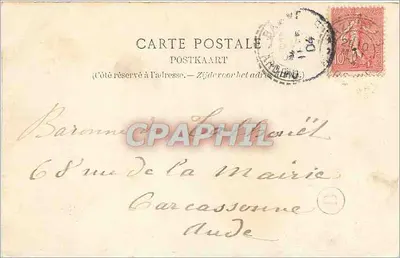 CARTE POSTALE
POSTKAART
(Côté réservé à l'adresse. – Zijde voor het adres
04
Baronne de
CPAPHIL
68 rue de la Mairie
Carcassonne
Aude
D